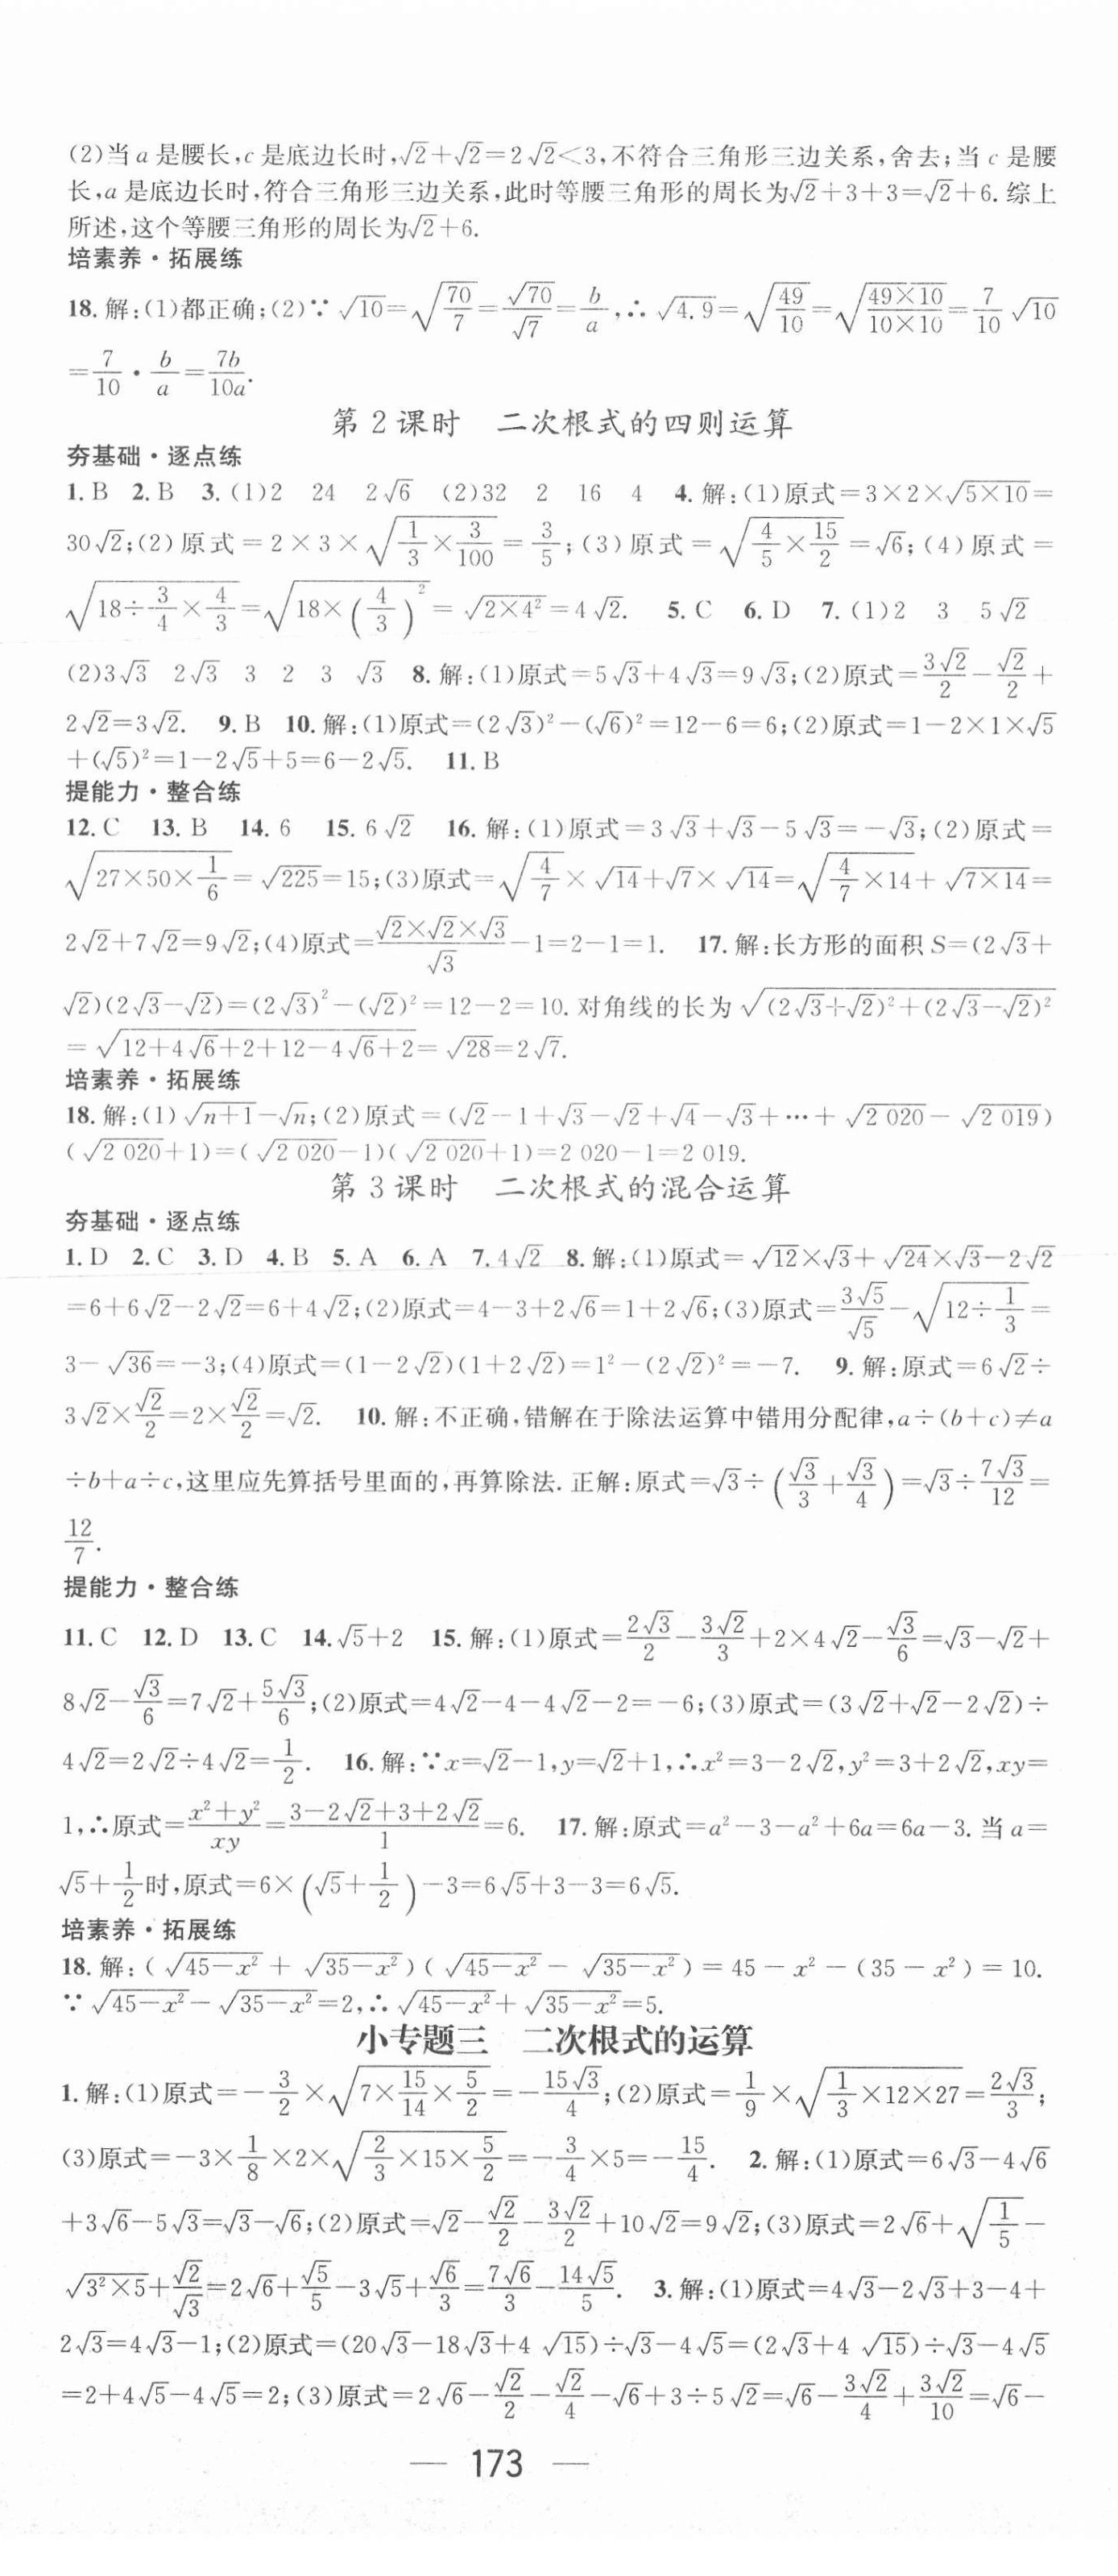 (2)当a是腰长,c是底边长时,√2+√2=2√2<3,不符合三角形三边关系,舍去;当c是腰
长,a是底边长时,符合三角形三边关系,此时等腰三角形的周长为√2+3+3=√2+6.综上
所述,这个等腰三角形的周长为√2+6.
培素养·拓展练
18.解:(1)都正确;(2)∵√10=√(70/7)=√70/√7=b/a,∴√4.9=√(49/10)=√((49×10)/(10×10))=7/10 √10
=7/10·b/a=7b/10a.
第2课时 二次根式的四则运算
夯基础·逐点练
1.B 2.B 3.(1)2 24 2√6 (2)32 2 16 4 4.解:(1)原式=3×2×√(5×10)=
30√2;(2)原式=2×3×√(1/3×3/100)=3/5;(3)原式=√(4/5×15/2)=√6;(4)原式=
√(18÷3/4×4/3)=√(18×(4/3)²)=√(2×4²)=4√2. 5.C 6.D 7.(1)2 3 5√2
(2)3√3 2√3 3 2 3 √3 8.解:(1)原式=5√3+4√3=9√3;(2)原式=3√2/2-√2/2+
2√2=3√2. 9.B 10.解:(1)原式=(2√3)²-(√6)²=12-6=6;(2)原式=1-2×1×√5
+(√5)²=1-2√5+5=6-2√5. 11.B
提能力·整合练
12.C 13.B 14.6 15.6√2 16.解:(1)原式=3√3+√3-5√3=-√3;(2)原式=
√(27×50×1/6)=√225=15;(3)原式=√(4/7)×√14+√7×√14=√(4/7×14)+√(7×14)=
2√2+7√2=9√2;(4)原式=(√2×√2×√3)/√3-1=2-1=1. 17.解:长方形的面积S=(2√3+
√2)(2√3-√2)=(2√3)²-(√2)²=12-2=10.对角线的长为√((2√3+√2)²+(2√3-√2)²)
=√(12+4√6+2+12-4√6+2)=√28=2√7.
培素养·拓展练
18.解:(1)√(n+1)-√n;(2)原式=(√2-1+√3-√2+√4-√3+…+√2 020-√2 019)
(√2 020+1)=(√2 020-1)(√2 020+1)=2 020-1=2 019.
第3课时 二次根式的混合运算
夯基础·逐点练
1.D 2.C 3.D 4.B 5.A 6.A 7.4√2 8.解:(1)原式=√12×√3+√24×√3-2√2
=6+6√2-2√2=6+4√2;(2)原式=4-3+2√6=1+2√6;(3)原式=3√5/√5-√(12÷1/3)=
3-√36=-3;(4)原式=(1-2√2)(1+2√2)=1²-(2√2)²=-7. 9.解:原式=6√2÷
3√2×√2/2=2×√2/2=√2. 10.解:不正确,错解在于除法运算中错用分配律,a÷(b+c)≠a
÷b+a÷c,这里应先算括号里面的,再算除法.正解:原式=√3÷(√3/3+√3/4)=√3÷7√3/12=
12/7.
提能力·整合练
11.C 12.D 13.C 14.√5+2 15.解:(1)原式=2√3/2-3√2/3+2×4√2-√3/6=√3-√2+
8√2-√3/6=7√2+5√3/6;(2)原式=4√2-4-4√2-2=-6;(3)原式=(3√2+√2-2√2)÷
4√2=2√2÷4√2=1/2. 16.解:∵x=√2-1,y=√2+1,∴x²=3-2√2,y²=3+2√2,xy=
1,∴原式=(x²+y²)/xy=(3-2√2+3+2√2)/1=6. 17.解:原式=a²-3-a²+6a=6a-3.当a=
√5+1/2时,原式=6×(√5+1/2)-3=6√5+3-3=6√5.
培素养·拓展练
18.解:(√(45-x²)+√(35-x²))(√(45-x²)-√(35-x²))=45-x²-(35-x²)=10.
∵√(45-x²)-√(35-x²)=2,∴√(45-x²)+√(35-x²)=5.
小专题三 二次根式的运算
1.解:(1)原式=-3/2×√(7×15/14×5/2)=-15√3/4;(2)原式=1/9×√(1/3×12×27)=2√3/3;
(3)原式=-3×1/8×2×√(2/3×15×5/2)=-3/4×5=-15/4. 2.解:(1)原式=6√3-4√6
+3√6-5√3=√3-√6;(2)原式=√2-√2/2-3√2/2+10√2=9√2;(3)原式=2√6+√(1/5)-
√(3²×5)+√2/√3=2√6+√5/5-3√5+√6/3=7√6/3-14√5/5. 3.解:(1)原式=4√3-2√3+3-4+
2√3=4√3-1;(2)原式=(20√3-18√3+4√15)÷√3-4√5=(2√3+4√15)÷√3-4√5
=2+4√5-4√5=2;(3)原式=2√6-√2/2-√2/4-√6+3÷5√2=√6-3√2/4+3√2/10=√6-
— 173 —